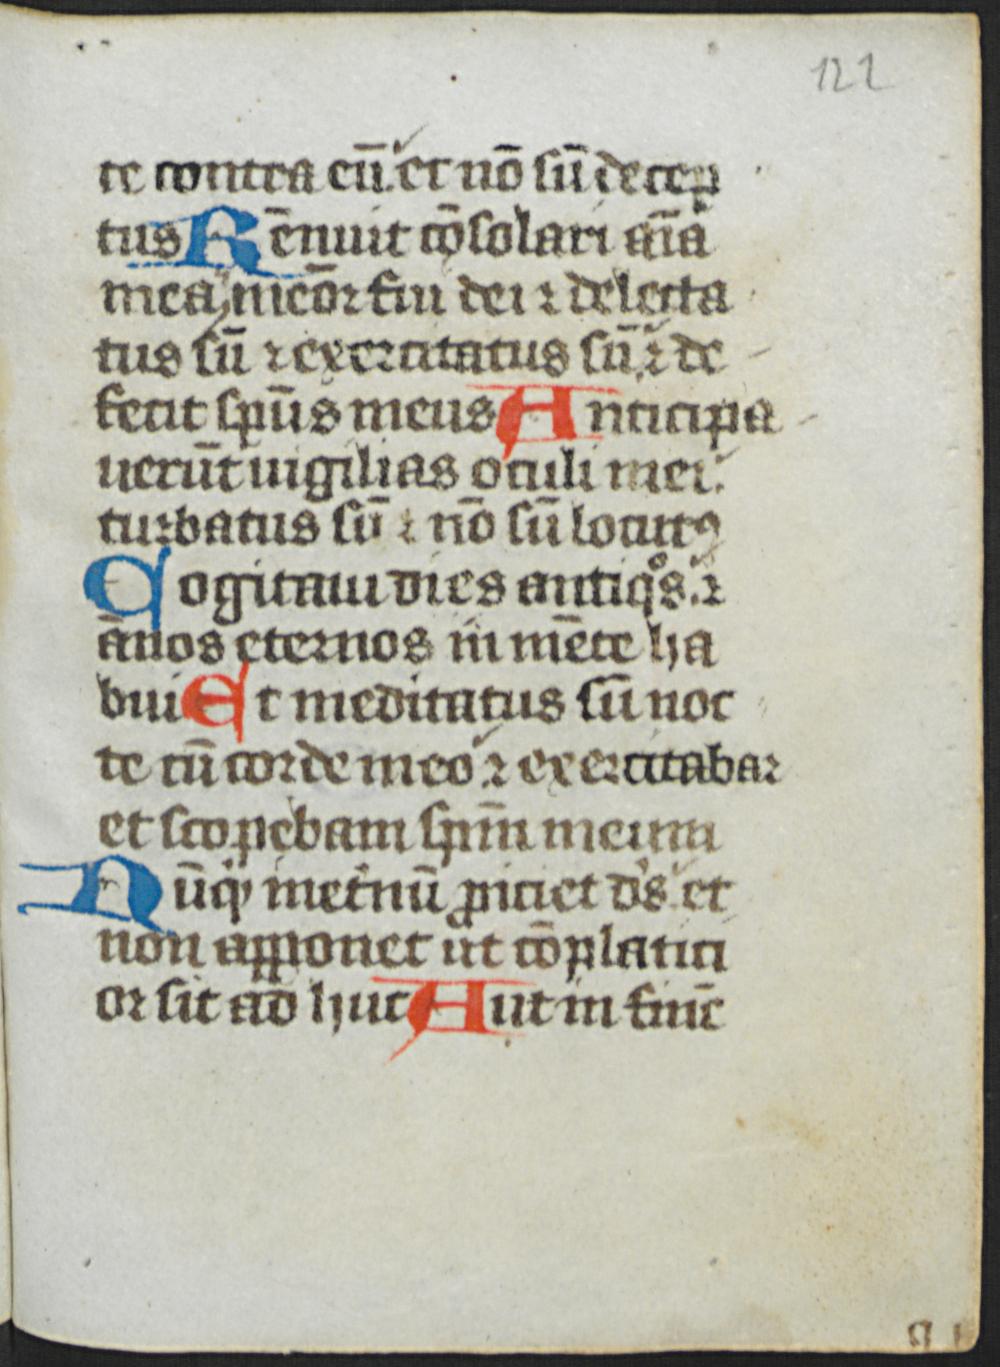 122
te contra eū. et nō sū decep
tus Rēnuit cōsolari aīa
mea, meōr fui dei ⁊ delecta
tus sū ⁊ exercitatus sū. ⁊ de
fecit spūs meus Anticipa
uerūt uigilias oculi mei.
turbatus sū ⁊ nō sū locutꝰ
Cogitaui dies antiqͦs. ⁊
ānos eternos in mēte ha
bui Et meditatus sū noc
te cū corde meo ⁊ exercitabar
et scopebam spm̄ meum
Nūqͥ in et̄nū ꝓiciet ds̄ et
non apponet ut cōplaciti
or sit ad huc Aut in finē